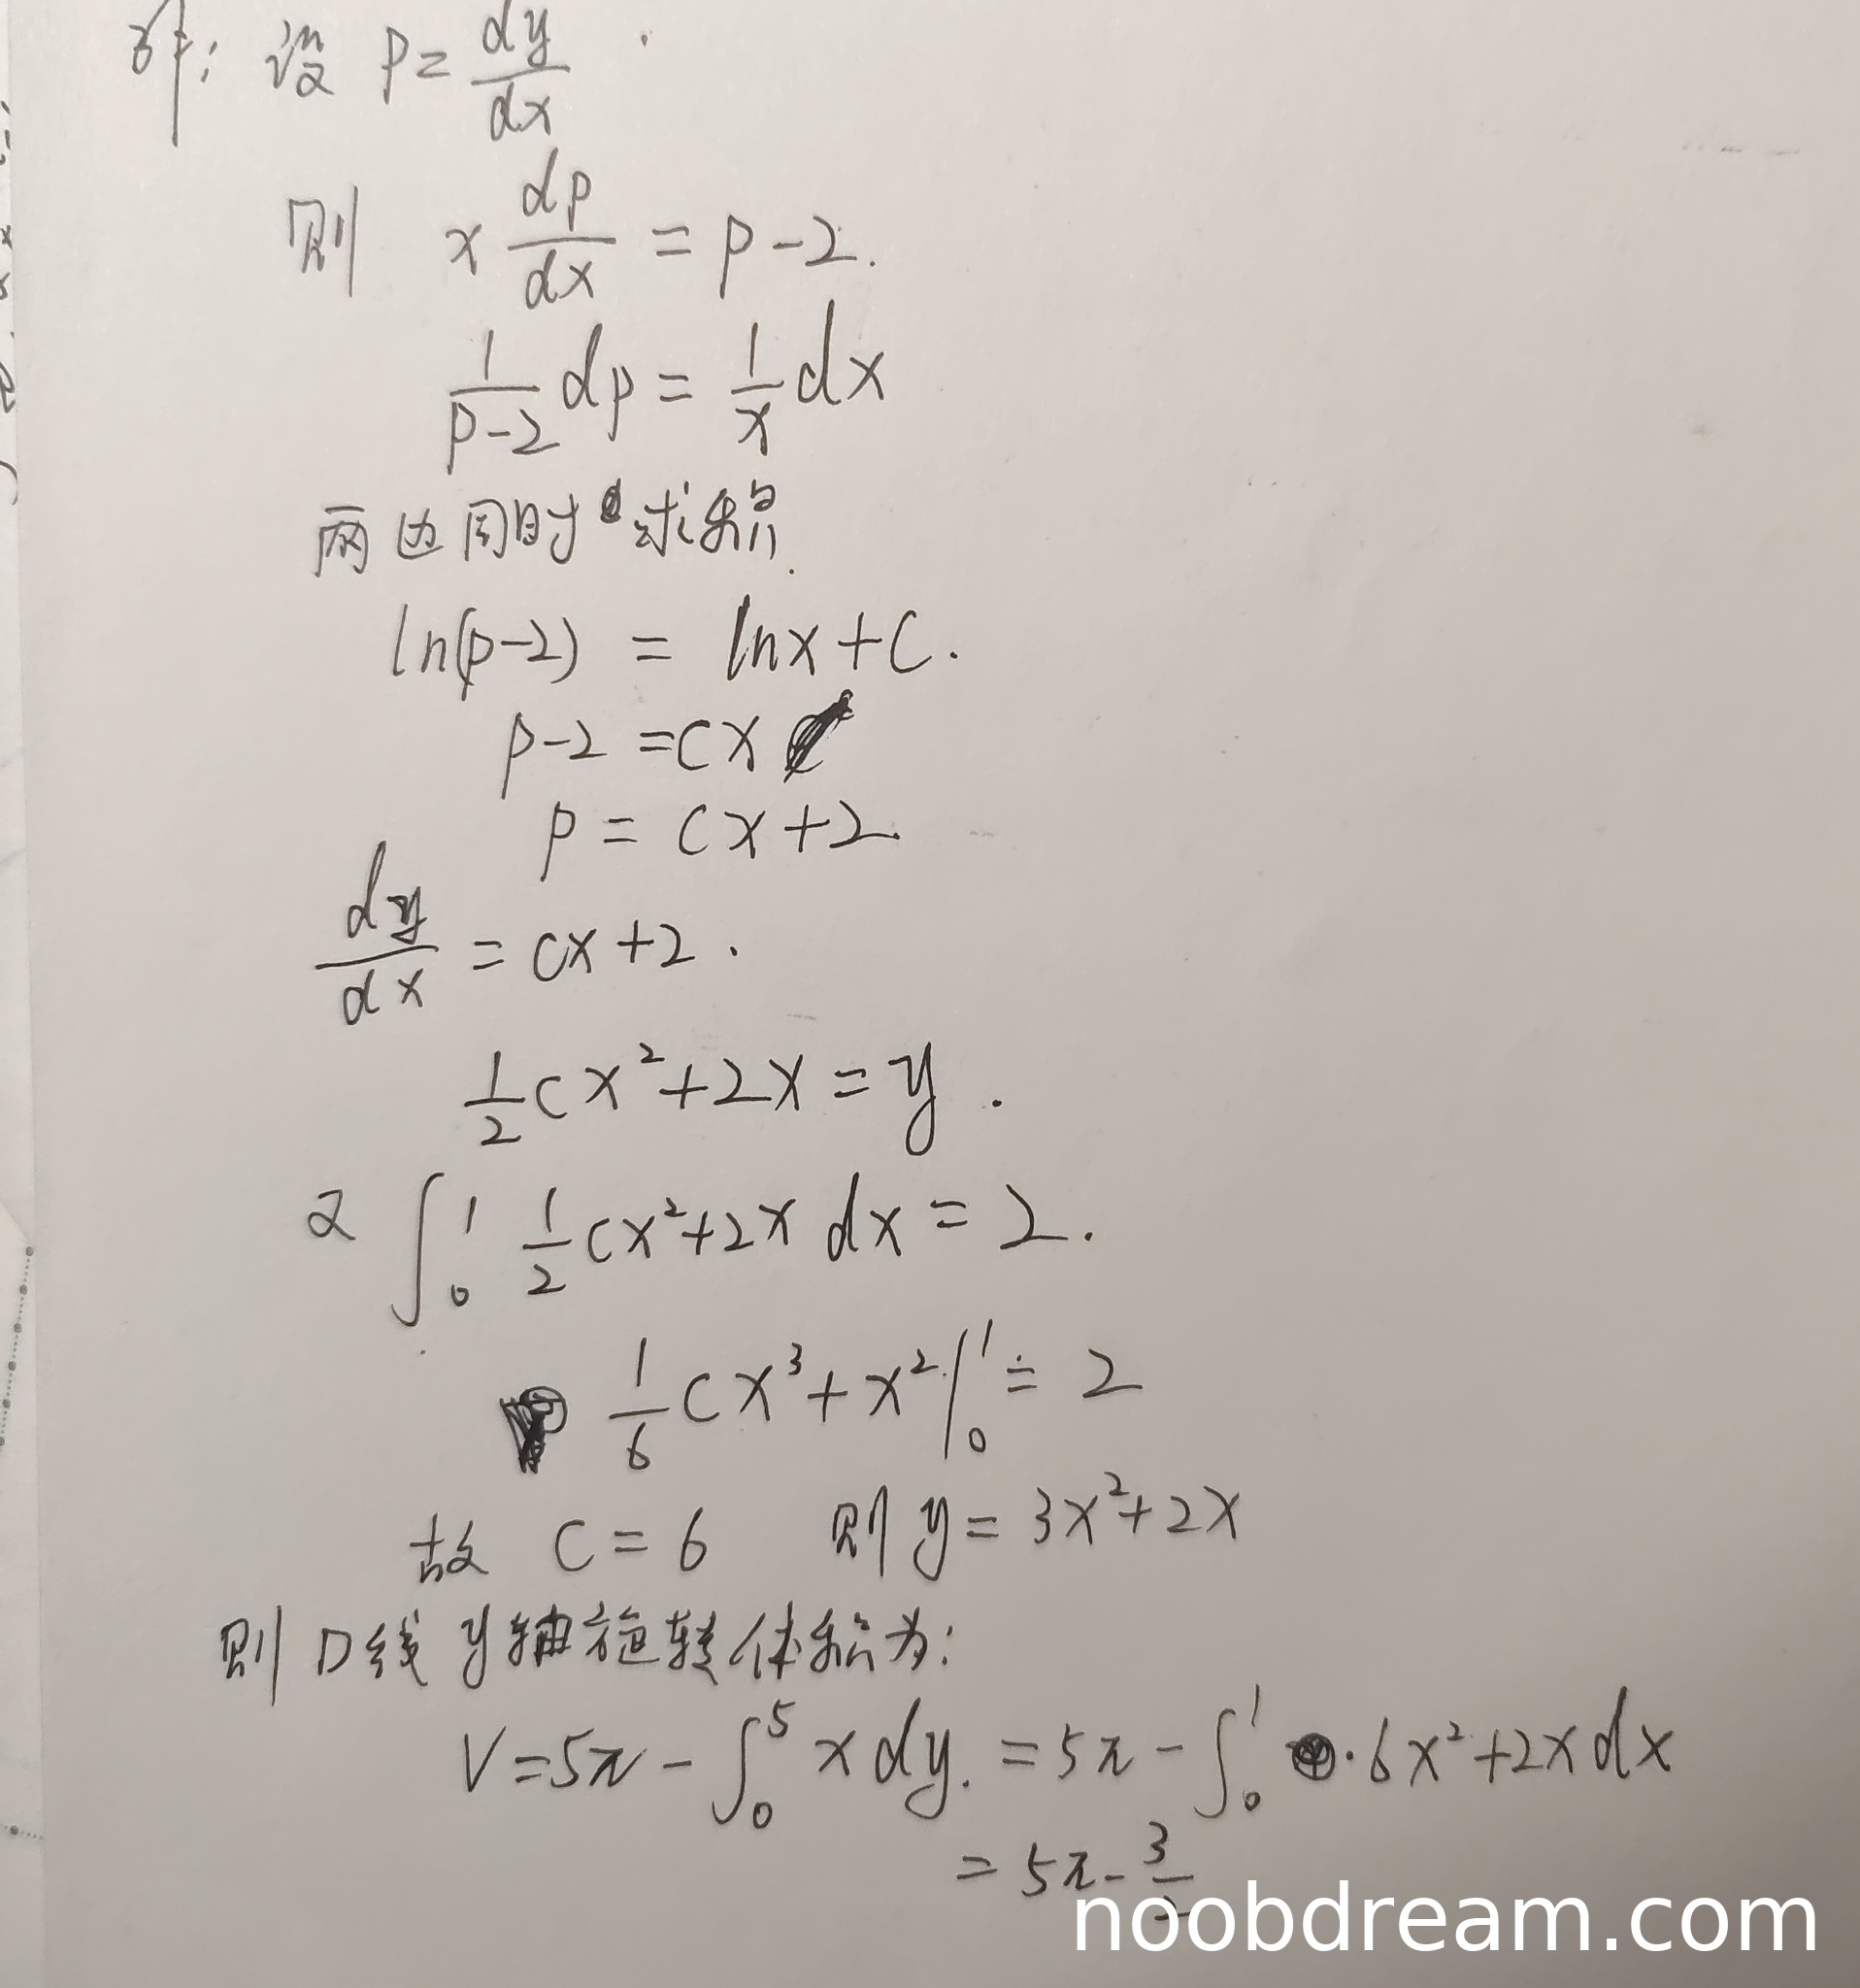 解: 设 P = dy/dx .
则 x dp/dx = p - 2.
1/(p-2) dp = 1/x dx
两边同时 求积.
ln(p-2) = lnx + C.
p - 2 = cx
p = cx + 2.
dy/dx = cx + 2 .
1/2 cx² + 2x = y .
又 ∫₀¹ 1/2 cx² + 2x dx = 2.
1/6 cx³ + x² |₀¹ = 2
故 C = 6 则 y = 3x² + 2x
则 D 线 y轴旋转体积为:
V = 5π - ∫₀⁵ x dy. = 5π - ∫₀¹ · 6x² + 2x dx
= 5π - 3/
noobdream.com